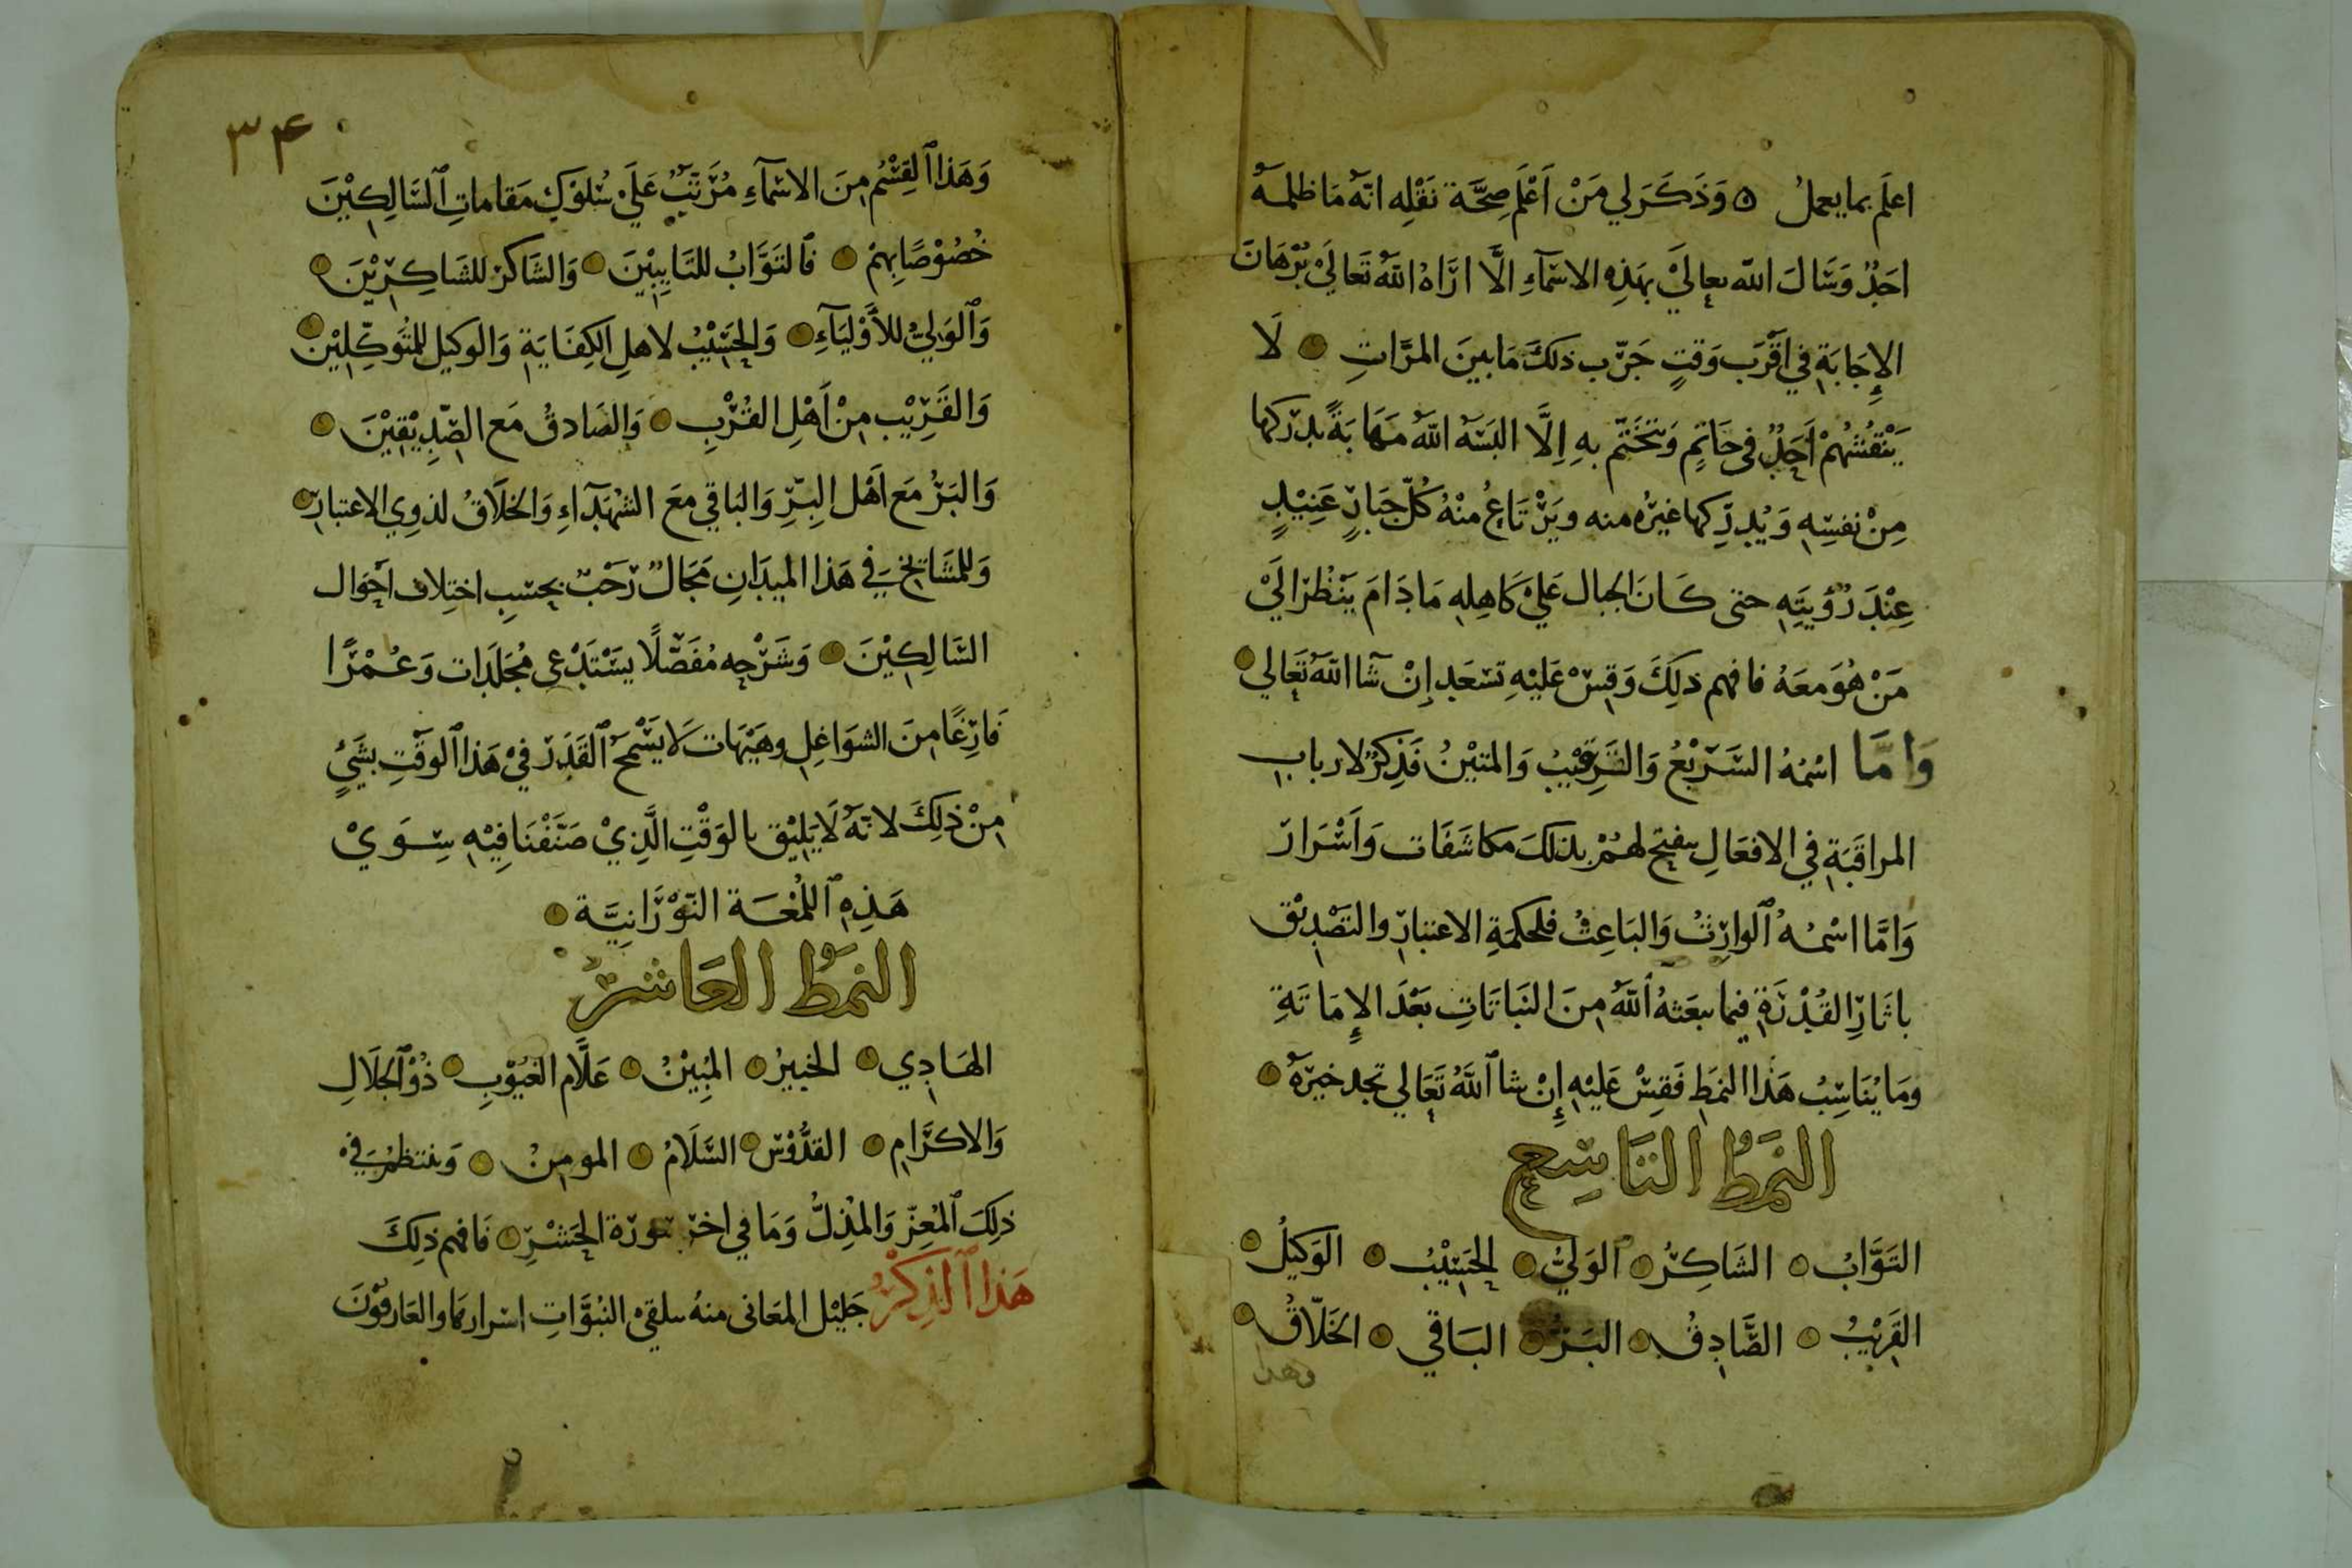 اعلَم بما يعملُ ٥ وَذَكَرَ لي مَنْ اَعْلَم صِحَّة نَقْلِه انّه مَا ظلمهُ
احَدٌ وَسَالَ الله تعالَىْ بهَذِهِ الاسْمآءِ الَّا ارَاهُ اللّهُ تَعَاليَ بُرْهَانَ
الإِجَابَةِ في اقْرَب وَقتٍ جَرّب ذلكَ مَا بينَ المرَّاتِ لَا
يَنْقُشُهُمْ اَحَدٌ في خَاتمٍ وَتخَتّم بهِ اِلَّا البَسَهُ اللّهُ مَهَابَةً يدْركها
مِنْ نفسِهِ وَيُدرِكها غيْرُه منه ويَرْتَاعُ منْهُ كُلّ جَبارٍ عَنِيْدٍ
عِنْدَ رُؤيَتِهِ حتى كَانَ الجبال عَليْ كَاهِلِهِ مَا دَامَ يَنْظُر الَيْ
مَنْ هُوَ معَهُ فافهم ذلِكَ وَقِسْ عَليْهِ تسْعَد إنْ شَآ اللّهُ تَعَالي
وَامَّا اسْمُهُ السَّرِيْعُ وَالرَّقِيْبُ وَالمتيْنُ فَذِكْرٌ لارباب
المراقَبَةِ في الافعَالِ يفتح لهمْ بذلكَ مكاشَفَات وَاَسْرَار
وَامَّا اسْمهُ الوارِثُ وَالبَاعِثُ فلحكمَةِ الاعتبارِ والتصْدِيْق
باثَارِ القُدْرَةِ فيما يبعَثهُ اللّهُ مِنَ النبَاتَاتِ بَعْدَ الإِمَاتَةِ
وَمَا يُنَاسِبُ هَذَا النمَطِ فَقِسْ عَليْهِ إِنْ شا اللَّهُ تَعَالي تجد خيْرَهُ
النمَطُ التاسِع
التَوَّابُ الشَاكِرُ الوَليُّ الحَسِيْبُ الوَكِيلُ
القَرِيْبُ الصَّادِقُ البَرُّ البَاقي الخَلّاقُ
وهذا
٣٤
وَهَذَا القِسْمُ مِنَ الاسْمآءِ مُرَتّبٌ عَلَيْ سُلوْكِ مَقاماتِ السَّالِكِيْنَ
خُصُوْصًا بِهِمْ فَالتَوَّابُ للتَايِبِيْنَ وَالشَاكرْ للشَاكِرِيْنَ
وَالوَليُّ للأَوْليَآءِ وَالحَسِيْبُ لاهلِ الكِفَايَةِ وَالوكيل للمُتَوكِّلِيْن
وَالقَرِيْب مِنْ اَهْلِ القُرْبِ وَالصَادقُ مَع الصِّدِيْقِيْنَ
وَالبَرُّ مَع اَهْل البِرِّ وَالبَاقي معَ الشهَدَآءِ وَالخلَّاقُ لذوِي الاعتبارِ
وَللمَشَايخِ في هَذا الميدَانِ مَجَالٌ رَحْبٌ بحسَبِ اختِلاف احْوَال
السَّالِكِيْنَ وَشَرْحه مُفَصّلًا يسْتَدْعى مُجَلدَات وَعُمْرًا
فَارِغًا مِنَ الشوَاغِلِ وهَيْهَات لَا يَسْمحُ القَدَر فيْ هَذا الوَقْتِ بشَيْءٍ
مِنْ ذلِكَ لانّهُ لَا يَلِيْق بالوَقْتِ الَّذِيْ صَنَّفْنَا فِيْهِ سِوَيْ
هَذِهِ اللُمْعَة النّوْرَانِيَّة
النمَطُ العَاشرُ
الهَادِي الخبيرُ المُبِيْنُ عَلَّام الغُيُوْبِ ذُوْ الجلَالِ
وَالاكرَامِ القدُّوْسُ السَّلَامُ المومِنُ وَينتظمُ في
ذلِكَ المُعِزّ وَالمُذِلُّ وَمَا في اخر سورَة الحَشْرِ فَافهم ذلِكَ
هَذا الذِكْرُ جَليْل المعَانى منهُ يلقيْ النبُوَّاتِ اسْرارها والعَارفوْنَ